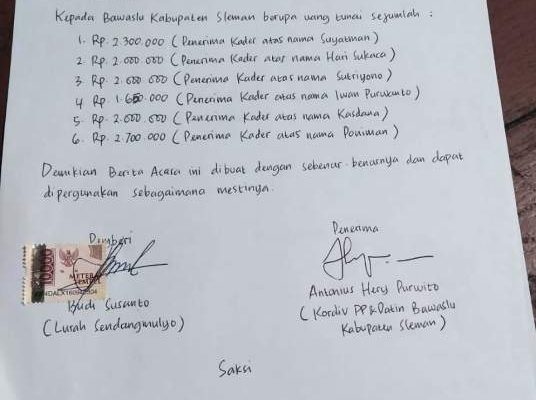 Kepada Bawaslu Kabupaten Sleman berupa uang tunai sejumlah :
1. Rp. 2.300.000 (Penerima Kader atas nama Suyatman)
2. Rp. 2.000.000 (Penerima Kader atas nama Hari Sukaca)
3 Rp. 2.600.000 (Penerima Kader atas nama Sutriyono)
4 Rp. 1.650.000 (Penerima Kader atas nama Iwan Purwanto)
5. Rp. 2.000.000 (Penerima Kader atas nama Kasdana)
6. Rp. 2.700.000 (Penerima Kader atas nama Poniman)
Demikian Berita Acara ini dibuat dengan sebenar-benarnya dan dapat
dipergunakan sebagaimana mestinya.
Pemberi
Penerima
10000
METERAI
TEMPEL
Budi Susanto
(Lurah Sendangmulyo)
Antonius Hery Purwito
(Kordiv PP & Datin Bawaslu
Kabupaten Sleman)
Saksi